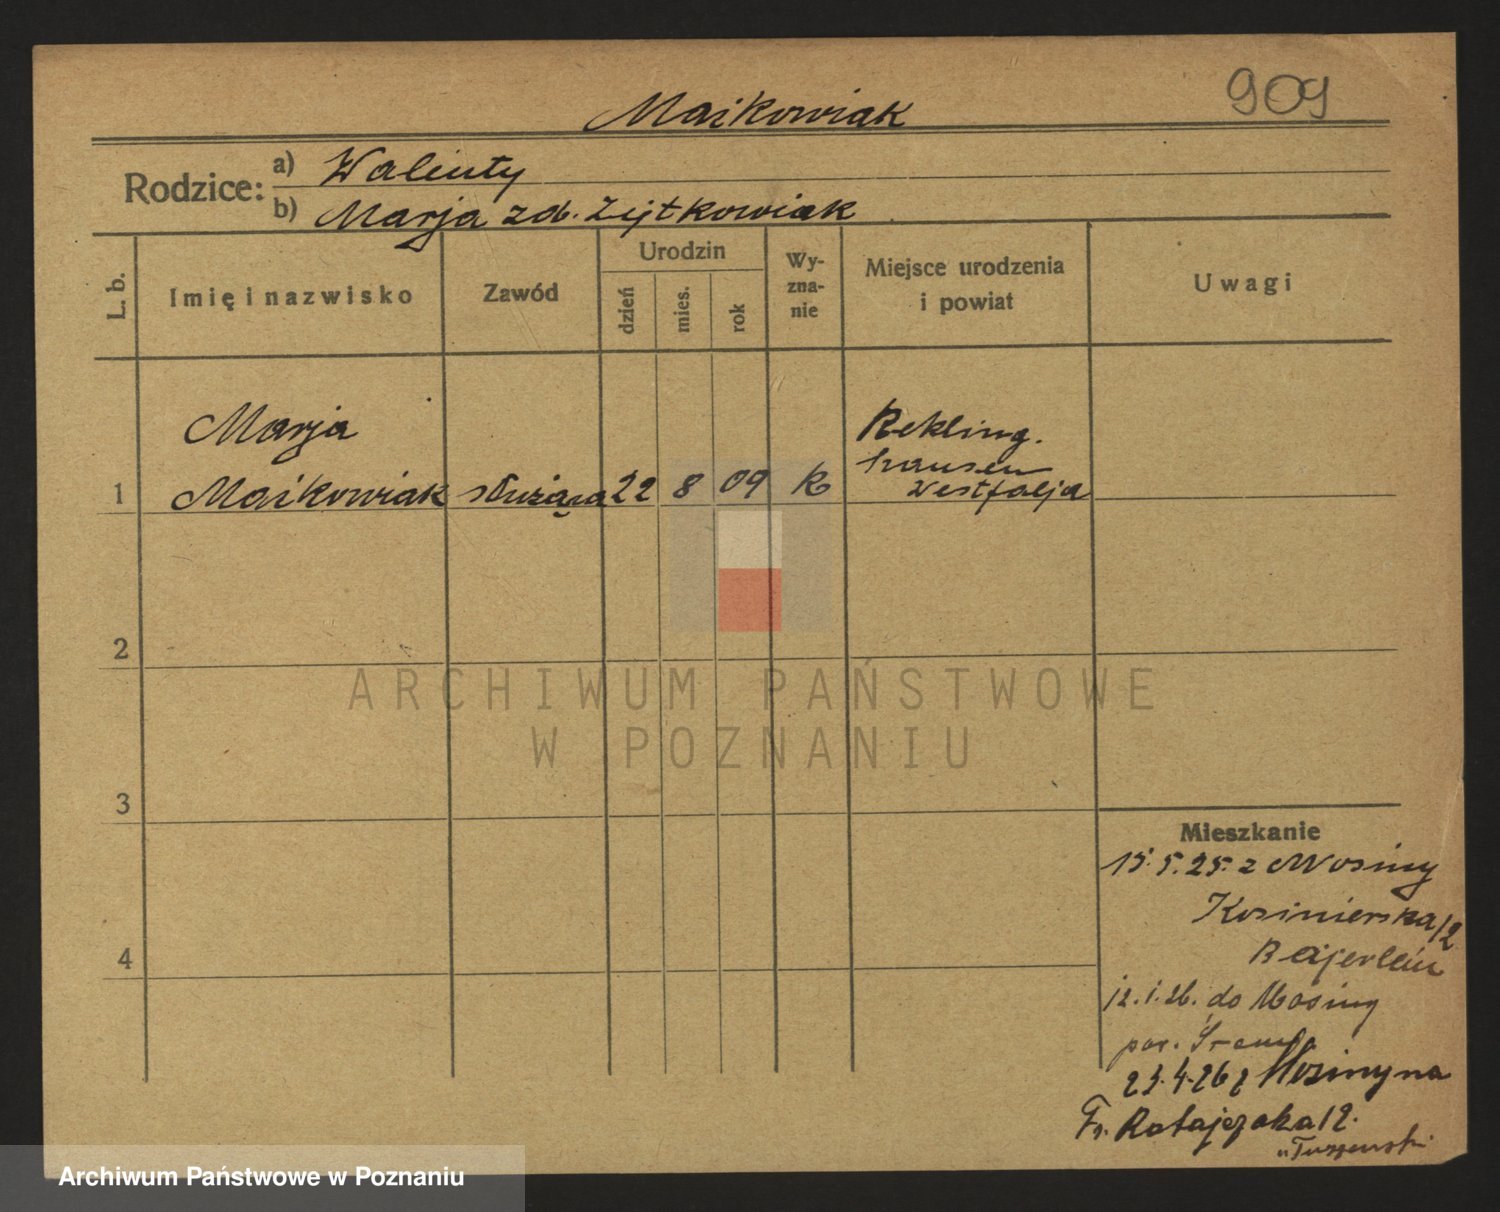 909
Maikowiak
Rodzice: a) Walenty
b) Marja zd. Zytkowiak
L. b.
Imię i nazwisko
Zawód
Urodzin
dzień
mies.
rok
Wy-
zna-
nie
Miejsce urodzenia
i powiat
Uwagi
Marja
Rekling.
hausen
1 Maikowiak służąca 22 8 09 R Westfalja
2
ARCHIWUM PAŃSTWOWE
W POZNANIU
3
Mieszkanie
15.5.25. z Mosiny
Kosinierska 12
Bajerlein
4
12.1.26. do Mosiny
pow. Śrem
23.4.26 z Mosiny na
Fr. Ratajczaka 12.
Archiwum Państwowe w Poznaniu